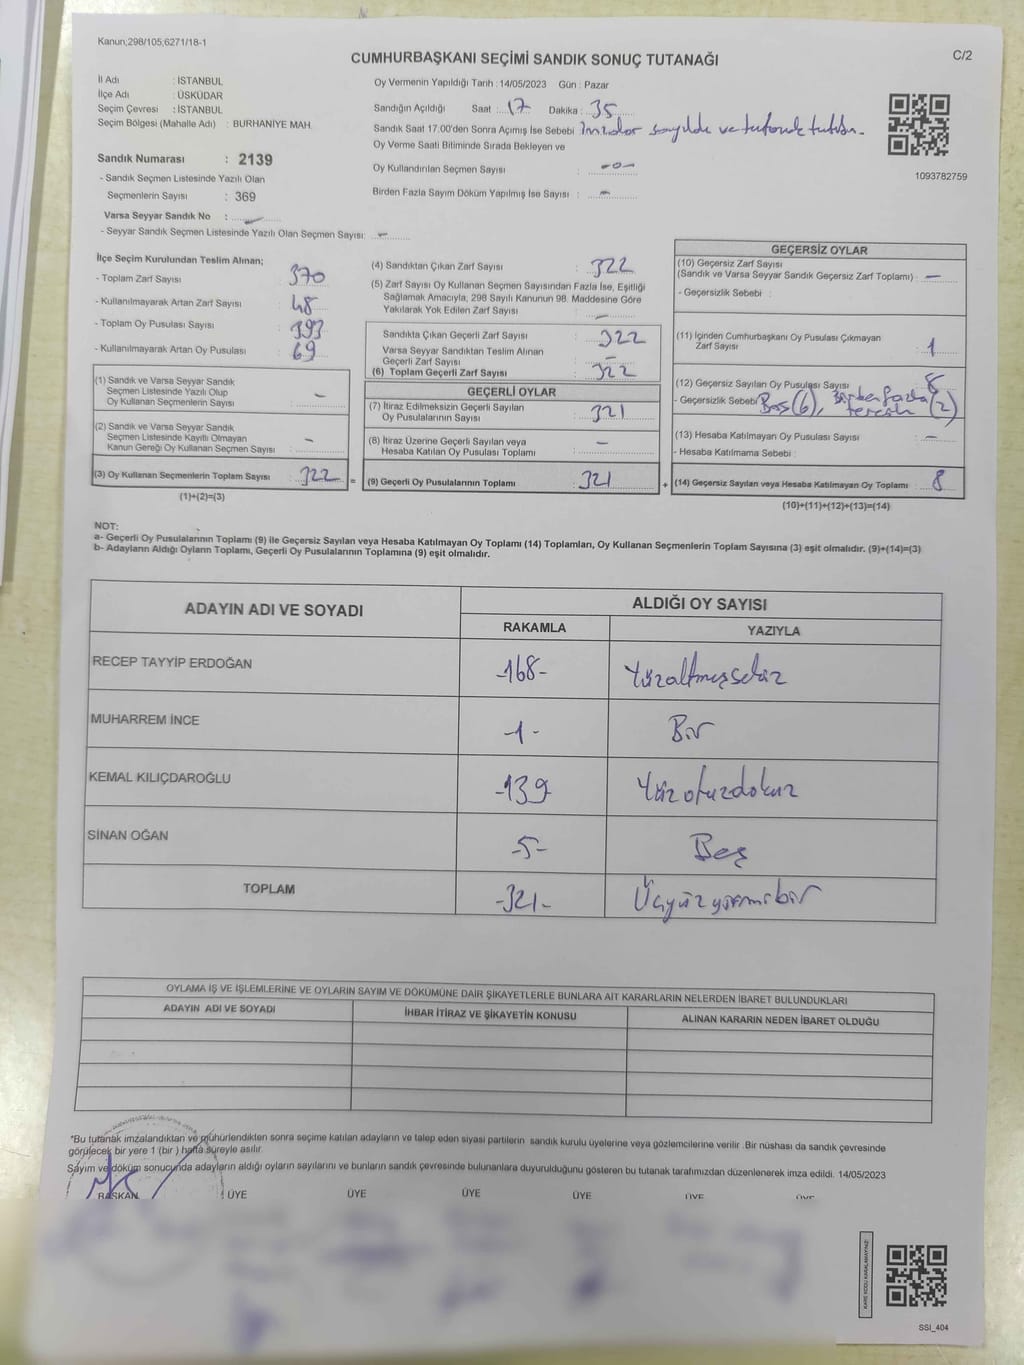 Kanun;298/105,6271/18-1
CUMHURBAŞKANI SEÇİMİ SANDIK SONUÇ TUTANAĞI
C/2
İl Adı : İSTANBUL
İlçe Adı : ÜSKÜDAR
Seçim Çevresi : İSTANBUL
Seçim Bölgesi (Mahalle Adı) : BURHANİYE MAH.
Sandık Numarası : 2139
- Sandık Seçmen Listesinde Yazılı Olan
Seçmenlerin Sayısı : 369
Varsa Seyyar Sandık No :
- Seyyar Sandık Seçmen Listesinde Yazılı Olan Seçmen Sayısı:
Oy Vermenin Yapıldığı Tarih : 14/05/2023 Gün : Pazar
Sandığın Açıldığı Saat : 17 Dakika : 35
Sandık Saat 17.00'den Sonra Açımış İse Sebebi : İmzalar sayıldı ve tutanak tutulan.
Oy Verme Saati Bitiminde Sırada Bekleyen ve
Oy Kullandırılan Seçmen Sayısı : -0-
Birden Fazla Sayım Döküm Yapılmış İse Sayısı : -
1093782759
İlçe Seçim Kurulundan Teslim Alınan;
- Toplam Zarf Sayısı : 370
- Kullanılmayarak Artan Zarf Sayısı : 48
- Toplam Oy Pusulası Sayısı : 393
- Kullanılmayarak Artan Oy Pusulası : 69
(1) Sandık ve Varsa Seyyar Sandık
Seçmen Listesinde Yazılı Olup
Oy Kullanan Seçmenlerin Sayısı : -
(2) Sandık ve Varsa Seyyar Sandık
Seçmen Listesinde Kayıtlı Olmayan
Kanun Gereği Oy Kullanan Seçmen Sayısı : -
(3) Oy Kullanan Seçmenlerin Toplam Sayısı : 322 =
(1)+(2)=(3)
(4) Sandıktan Çıkan Zarf Sayısı : 322
(5) Zarf Sayısı Oy Kullanan Seçmen Sayısından Fazla İse, Eşitliği
Sağlamak Amacıyla, 298 Sayılı Kanunun 98. Maddesine Göre
Yakılarak Yok Edilen Zarf Sayısı : -
Sandıkta Çıkan Geçerli Zarf Sayısı : 322
Varsa Seyyar Sandıktan Teslim Alınan
Geçerli Zarf Sayısı : -
(6) Toplam Geçerli Zarf Sayısı : 322
GEÇERLİ OYLAR
(7) İtiraz Edilmeksizin Geçerli Sayılan
Oy Pusulalarının Sayısı : 321
(8) İtiraz Üzerine Geçerli Sayılan veya
Hesaba Katılan Oy Pusulası Toplamı : -
(9) Geçerli Oy Pusulalarının Toplamı : 321 +
GEÇERSİZ OYLAR
(10) Geçersiz Zarf Sayısı
(Sandık ve Varsa Seyyar Sandık Geçersiz Zarf Toplamı) : -
- Geçersizlik Sebebi :
(11) İçinden Cumhurbaşkanı Oy Pusulası Çıkmayan
Zarf Sayısı : 1
(12) Geçersiz Sayılan Oy Pusulası Sayısı : 8
- Geçersizlik Sebebi : Boş (6), Birden fazla tercih (2)
(13) Hesaba Katılmayan Oy Pusulası Sayısı : -
- Hesaba Katılmama Sebebi :
(14) Geçersiz Sayılan veya Hesaba Katılmayan Oy Toplamı : 8
(10)+(11)+(12)+(13)=(14)
NOT:
a- Geçerli Oy Pusulalarının Toplamı (9) ile Geçersiz Sayılan veya Hesaba Katılmayan Oy Toplamı (14) Toplamları, Oy Kullanan Seçmenlerin Toplam Sayısına (3) eşit olmalıdır. (9)+(14)=(3)
b- Adayların Aldığı Oyların Toplamı, Geçerli Oy Pusulalarının Toplamına (9) eşit olmalıdır.
ADAYIN ADI VE SOYADI ALDIĞI OY SAYISI
RAKAMLA YAZIYLA
RECEP TAYYİP ERDOĞAN -168- Yüzaltmışsekiz
MUHARREM İNCE -1- Bir
KEMAL KILIÇDAROĞLU -139- Yüzotuzdokuz
SİNAN OĞAN -5- Beş
TOPLAM -321- Üçyüzyirmibir
OYLAMA İŞ VE İŞLEMLERİNE VE OYLARIN SAYIM VE DÖKÜMÜNE DAİR ŞİKAYETLERLE BUNLARA AİT KARARLARIN NELERDEN İBARET BULUNDUKLARI
ADAYIN ADI VE SOYADI İHBAR İTİRAZ VE ŞİKAYETİN KONUSU ALINAN KARARIN NEDEN İBARET OLDUĞU
*Bu tutanak imzalandıktan ve mühürlendikten sonra seçime katılan adayların ve talep eden siyasi partilerin sandık kurulu üyelerine veya gözlemcilerine verilir. Bir nüshası da sandık çevresinde
görülecek bir yere 1 (bir ) hafta süreyle asılır.
Sayım ve döküm sonucunda adayların aldığı oyların sayılarını ve bunların sandık çevresinde bulunanlara duyurulduğunu gösteren bu tutanak tarafımızdan düzenlenerek imza edildi. 14/05/2023
BAŞKAN ÜYE ÜYE ÜYE ÜYE ÜYE ÜYE
KARE KODU KARALAMAYINIZ!
SSI_404